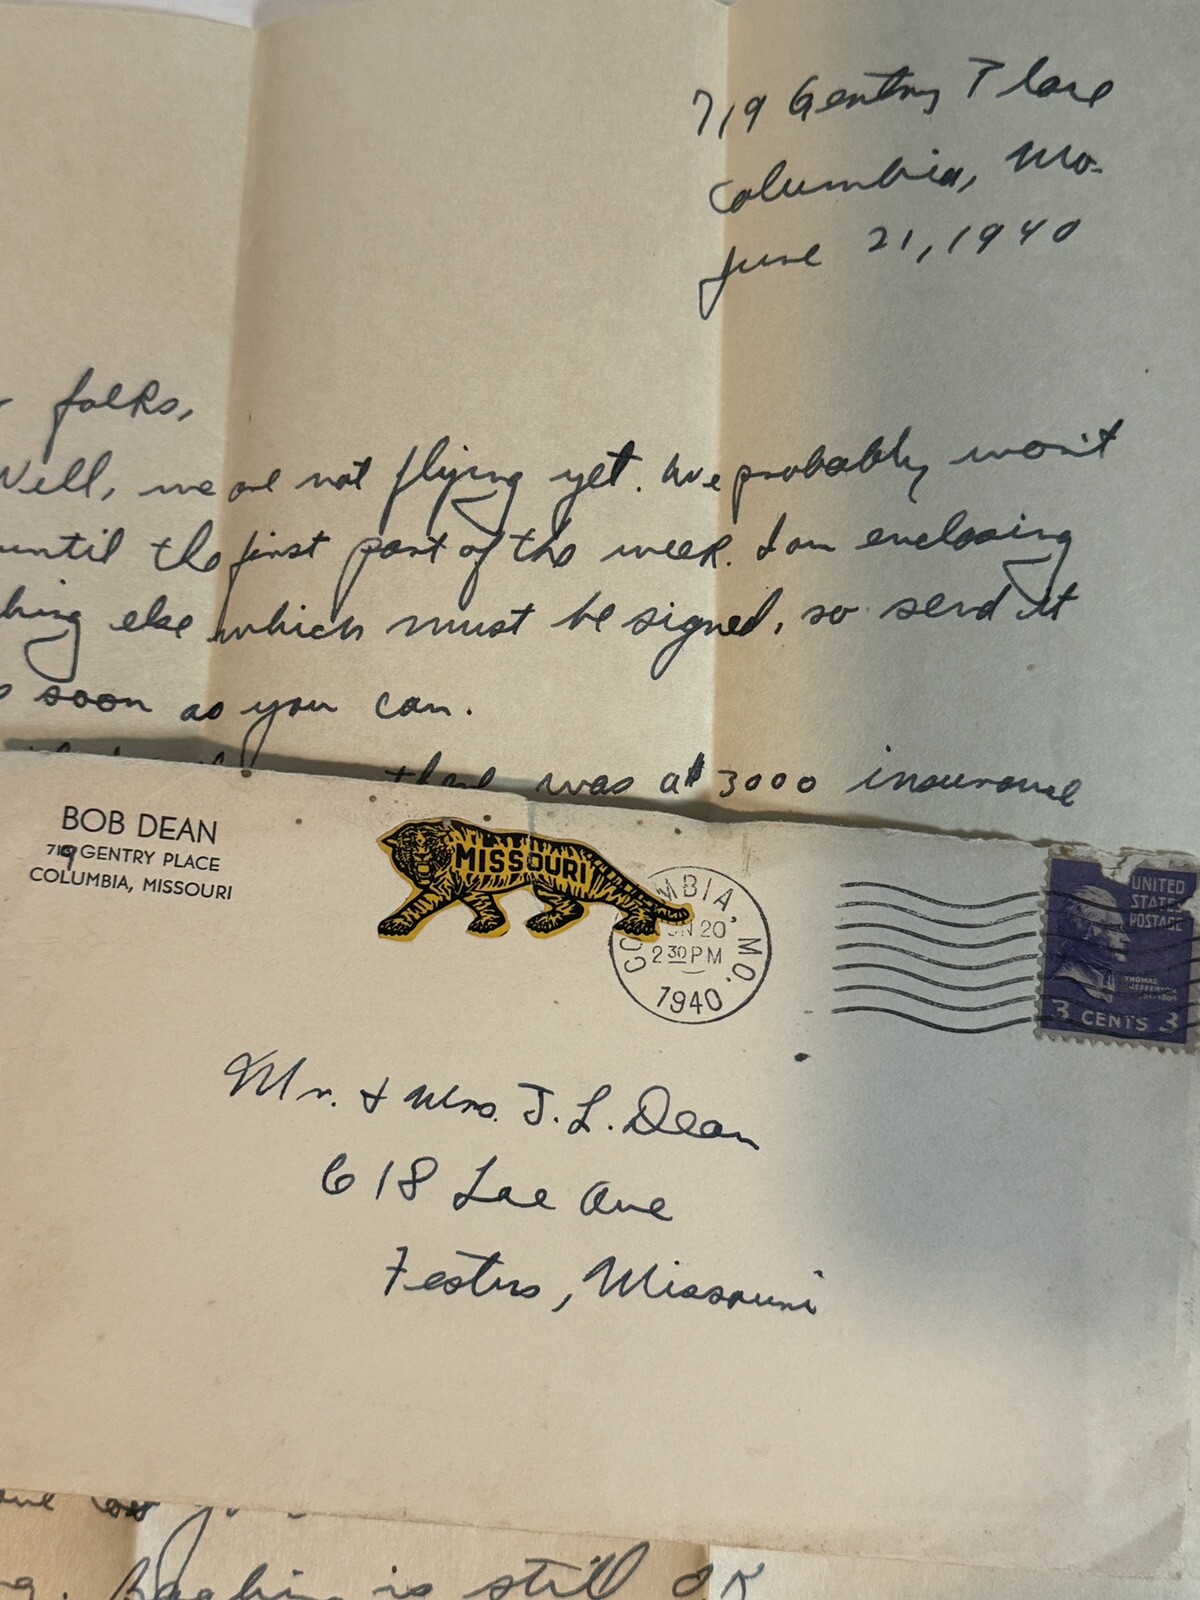 719 Gentry Place
Columbia, Mo.
June 21, 1940
folks,
Well, we are not flying yet. We probably won't
until the first part of the week. I am enclosing
thing else which must be signed, so send it
as soon as you can.
there was a $3000 insurance
BOB DEAN
719 GENTRY PLACE
COLUMBIA, MISSOURI
MISSOURI
COLUMBIA, MO.
JUN 20
2 30 PM
1940
UNITED
STATES
POSTAGE
THOMAS
JEFFERSON
3 CENTS 3
Mr. & Mrs. J. L. Dean
618 Lee Ave
Festus, Missouri
is still OK